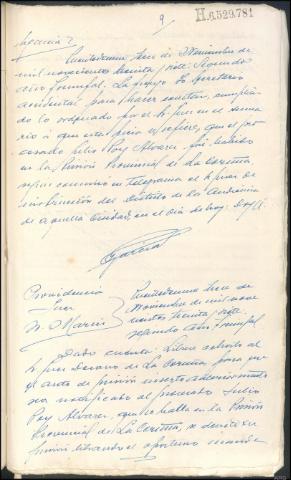 9
H.6529.781
Puentedeume, tres de Noviembre de
mil novecientos treinta y siete: Segundo
año Triunfal. La pongo yo Secretario
accidental para hacer constar, cumplien
do lo ordenado por el Sr Juez en el suma
rio a que esta pieza se refiere, que el pro
cesado Julio Rey Alvarez fué habido
en la Prisión Provincial de La Coruña
según comunicó en telegrama el Sr Juez de
instrucción del Distrito de la Audiencia
de aquella Ciudad, en el día de hoy. Doy fé.
Providencia
Juez
Sr
Puentedeume tres de
Noviembre de mil nove
cientos treinta y siete.
Segundo año Triunfal
Dado cuenta: Líbrese exhorto al
Sr Juez Decano de La Coruña para que
el auto de prisión inserto anteriormente
sea notificado al procesado Julio
Rey Alvarez, que se halla en la Prisión
Provincial de La Coruña, y se ratifique
prisión librando el oportuno